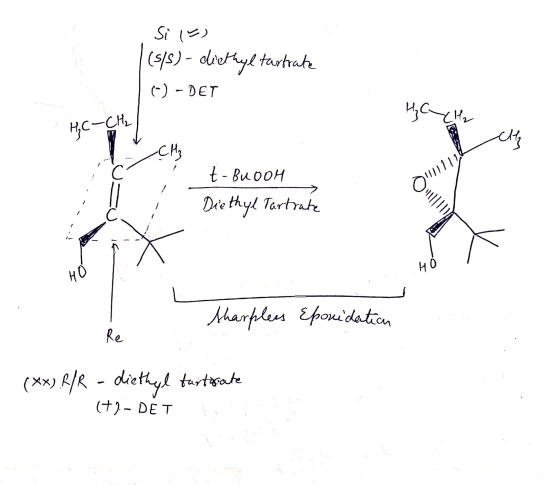 Si (=)
(S/S) - diethyl tartrate
(-) - DET
H₃C-CH₂
CH₃
C
C
HO
t-BuOOH
Diethyl Tartrate
H₃C-CH₂
CH₃
O
HO
Sharpless Epoxidation
Re
(xx) R/R - diethyl tartrate
(+) - DET